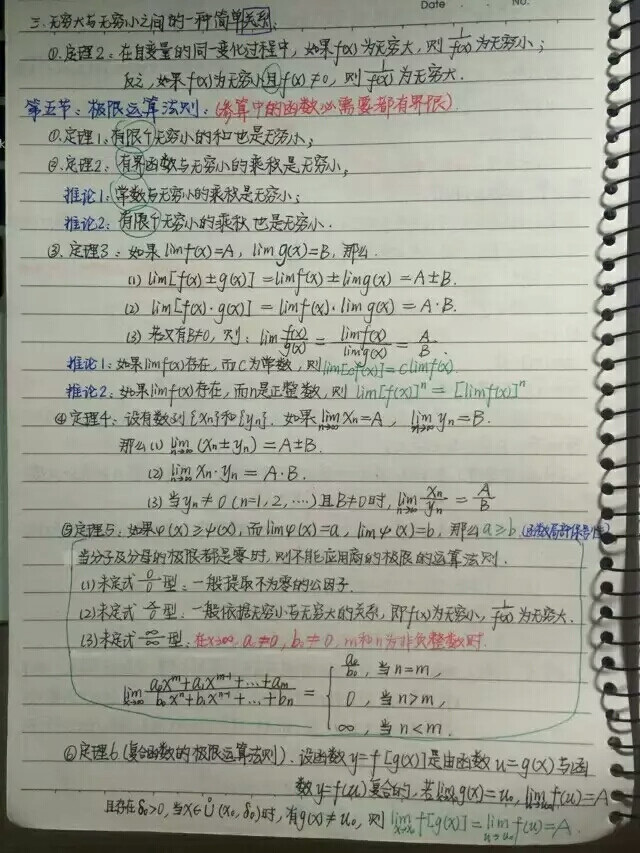 Date No.
三.无穷大与无穷小之间的一种简单关系:
①.定理2:在自变量的同一变化过程中,如果f(x)为无穷大,则1/f(x)为无穷小;
反之,如果f(x)为无穷小且f(x)≠0,则1/f(x)为无穷大.
第五节:极限运算法则:(参算中的函数必需要都有界限)
①.定理1:有限个无穷小的和也是无穷小;
②.定理2:有界函数与无穷小的乘积是无穷小;
推论1:常数与无穷小的乘积是无穷小;
推论2:有限个无穷小的乘积也是无穷小.
③.定理3:如果limf(x)=A,limg(x)=B,那么
(1) lim[f(x)±g(x)]=limf(x)±limg(x)=A±B.
(2) lim[f(x)·g(x)]=limf(x)·limg(x)=A·B.
(3) 若又有B≠0,则:lim f(x)/g(x) = limf(x)/limg(x) = A/B.
推论1:如果limf(x)存在,而C为常数,则lim[cf(x)]=climf(x).
推论2:如果limf(x)存在,而n是正整数,则lim[f(x)]^n=[limf(x)]^n
④定理4:设有数列{xn}和{yn}.如果lim n→∞ xn=A,lim n→∞ yn=B.
那么(1) lim n→∞ (xn±yn)=A±B.
(2) lim n→∞ xn·yn=A·B.
(3) 当yn≠0(n=1,2,....)且B≠0时,lim n→∞ xn/yn = A/B
⑤定理5:如果φ(x)≥ψ(x),而limφ(x)=a,limψ(x)=b,那么a≥b.(函数局部保号性)
当分子及分母的极限都是零时,则不能应用商的极限的运算法则.
(1)未定式0/0型:一般提取不为零的公因子.
(2)未定式 /0型:一般依据无穷小与无穷大的关系,即f(x)为无穷小,1/f(x)为无穷大.
(3)未定式∞/∞型:在x→∞,a₀≠0,b₀≠0,m和n为非负整数时.
lim x→∞ (a₀x^m+a₁x^(m-1)+...+am)/(b₀x^n+b₁x^(n-1)+...+bn) = { a₀/b₀,当n=m,
0,当n>m,
∞,当n<m.
⑥定理6(复合函数的极限运算法则).设函数y=f[g(x)]是由函数u=g(x)与函
数y=f(u)复合的,若lim x→x₀ g(x)=u₀,lim u→u₀ f(u)=A
且存在δ₀>0,当x∈Ů(x₀,δ₀)时,有g(x)≠u₀,则lim x→x₀ f[g(x)]=lim u→u₀ f(u)=A.